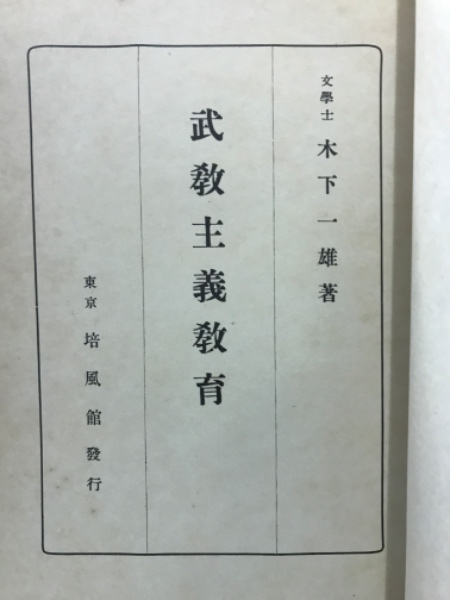 文學士 木下一雄著
武教主義教育
東京 培風館發行